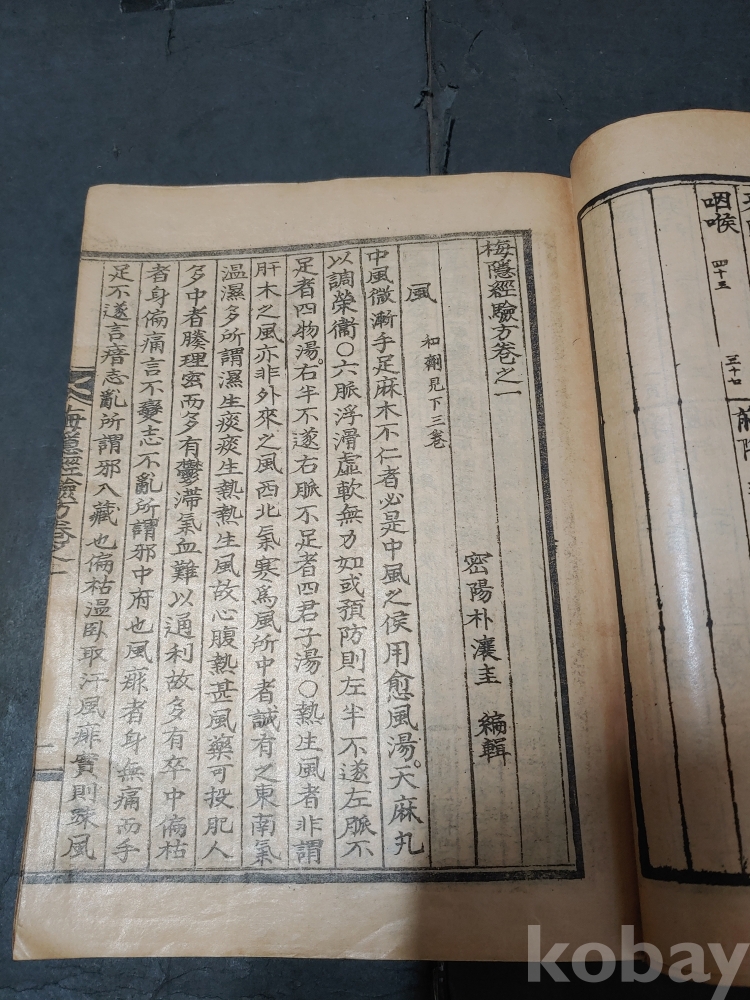 咽喉 四十五 三十七
梅隱經驗方卷之一
密陽朴瀼圭 編輯
風 和劑見下三卷
中風微漸手足麻木不仁者必是中風之侯用愈風湯。天麻丸
以調榮衞〇六脈浮滑虛軟無力如或預防則左半不遂左脈不
足者四物湯。右半不遂右脈不足者四君子湯〇熱生風者非謂
肝木之風亦非外來之風西北氣寒爲風所中者誠有之東南氣
溫濕多所謂濕生痰痰生熱熱生風故心腹熱甚風藥可投肥人
多中者腠理密而多有鬱滯氣血難以通利故多有卒中偏枯
者身偏痛言不變志不亂所謂邪中府也風痱者身無痛而手
足不遂言瘖志亂所謂邪入藏也偏枯溫臥取汗風痱實則踈風
梅隱經驗方卷之一
一
kobay